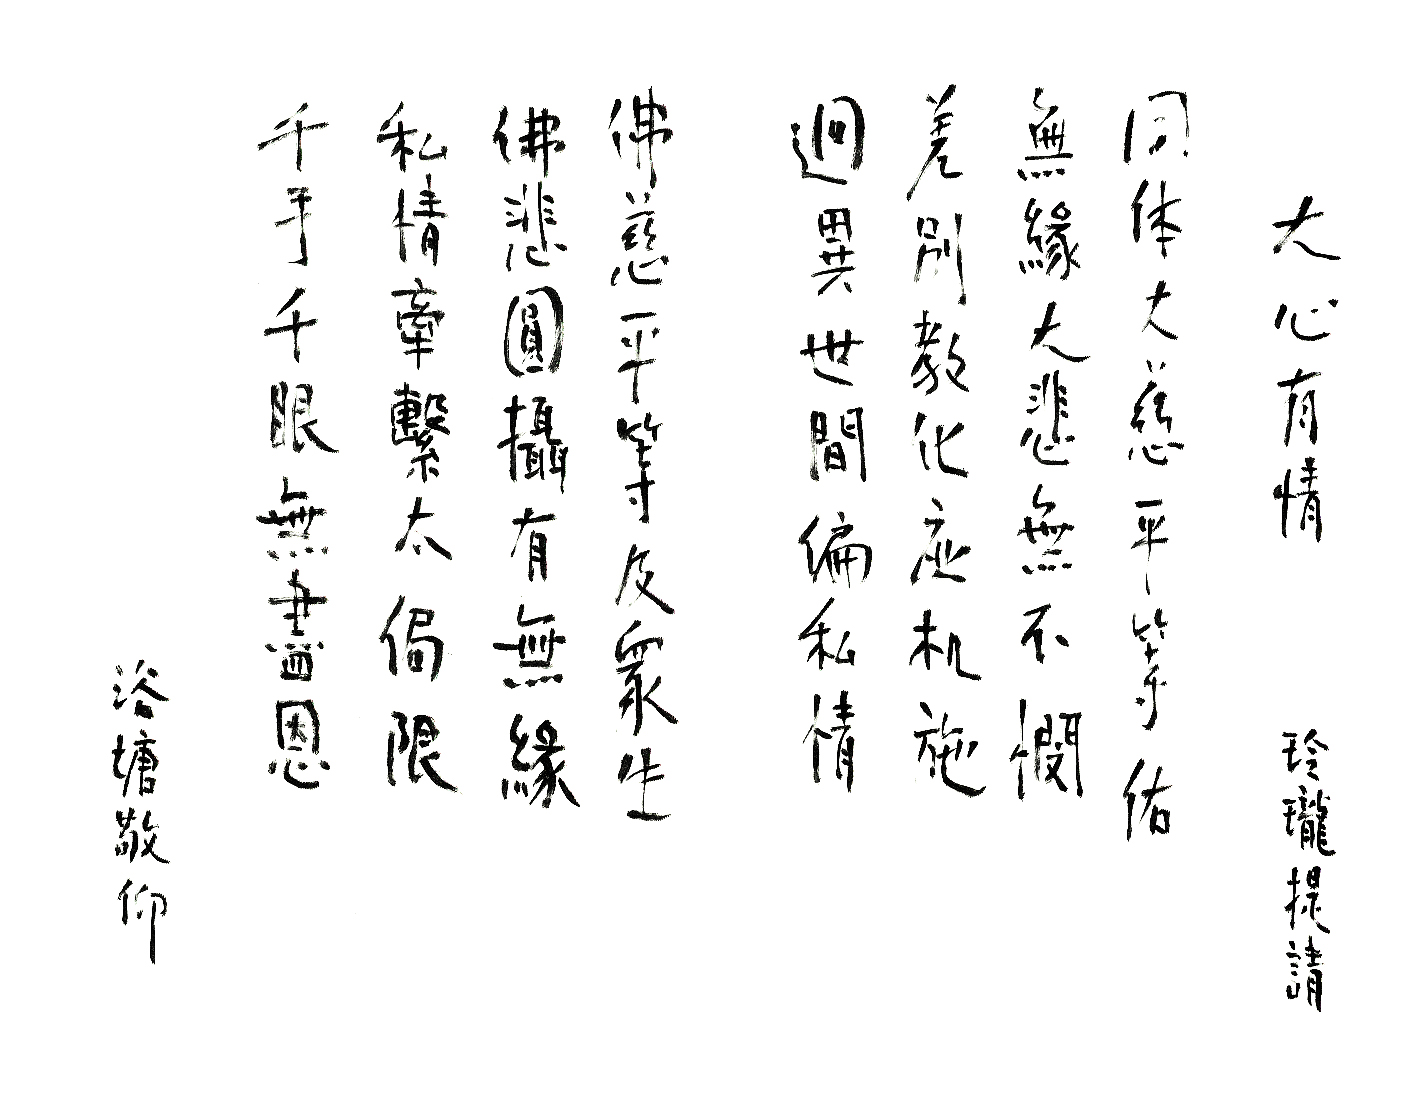 大心有情 玲瓏提請
同体大慈平等佑
無緣大悲無不憫
差別教化应机施
迥異世間偏私情
佛慈平等及眾生
佛悲圓攝有無緣
私情牽繫太侷限
千手千眼無盡恩
浴塘敬仰